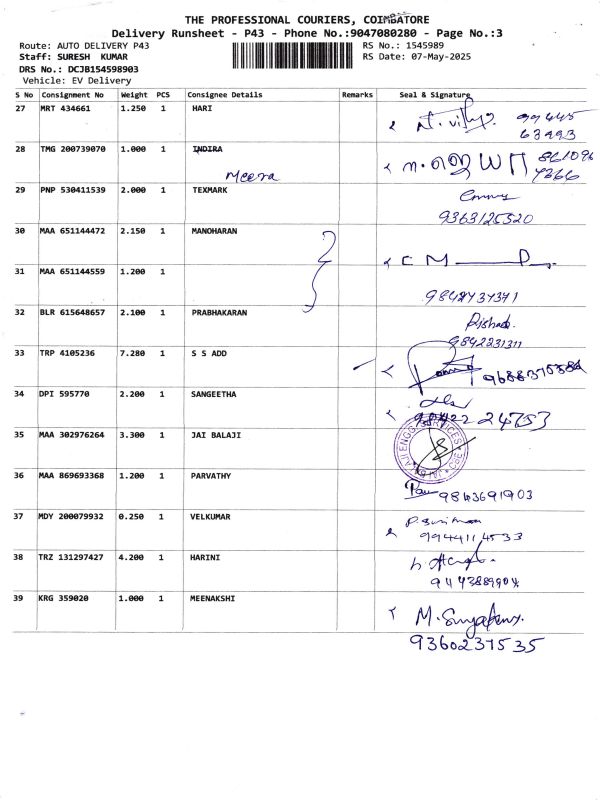 THE PROFESSIONAL COURIERS, COIMBATORE
Delivery Runsheet - P43 - Phone No.:9047080280 - Page No.:3
Route: AUTO DELIVERY P43 RS No.: 1545989
Staff: SURESH KUMAR RS Date: 07-May-2025
DRS No.: DCJB154598903
Vehicle: EV Delivery
S No Consignment No Weight PCS Consignee Details Remarks Seal & Signature
27 MRT 434661 1.250 1 HARI 99445
63993
28 TMG 200739070 1.000 1 INDIRA
Meera
29 PNP 530411539 2.000 1 TEXMARK
9363125520
30 MAA 651144472 2.150 1 MANOHARAN
31 MAA 651144559 1.200 1
32 BLR 615648657 2.100 1 PRABHAKARAN
9842231311
33 TRP 4105236 7.280 1 S S ADD
34 DPI 595770 2.200 1 SANGEETHA
35 MAA 302976264 3.300 1 JAI BALAJI
36 MAA 869693368 1.200 1 PARVATHY
9843691903
37 MDY 200079932 0.250 1 VELKUMAR
9944114533
38 TRZ 131297427 4.200 1 HARINI
39 KRG 359020 1.000 1 MEENAKSHI
9360237535